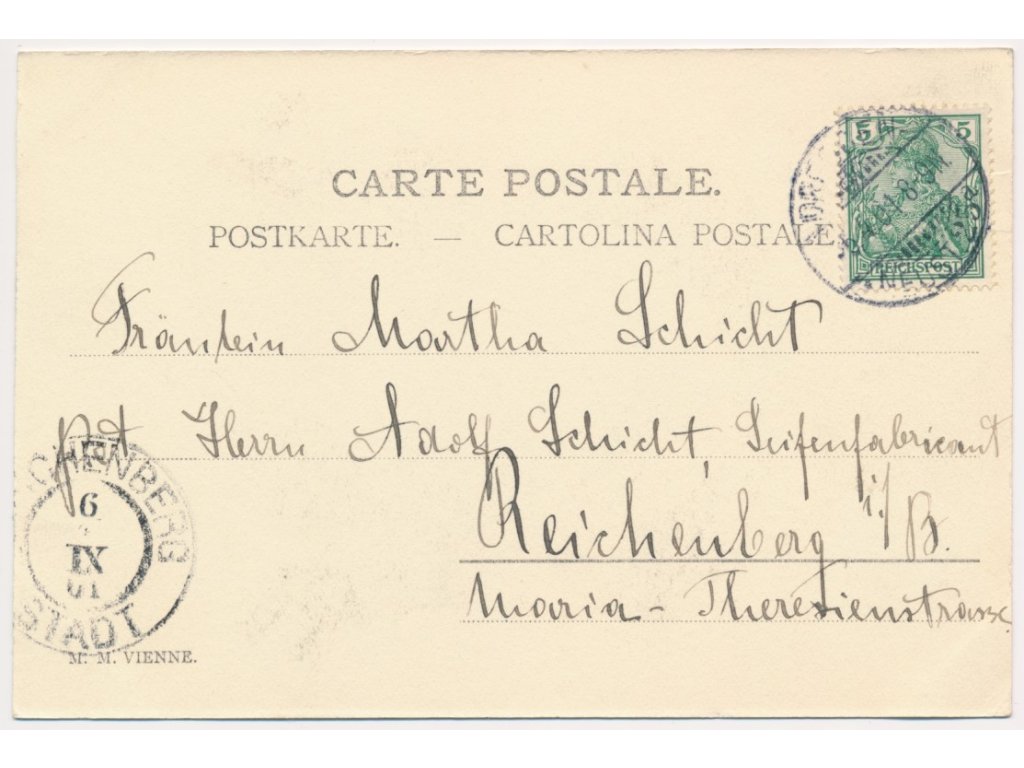 CARTE POSTALE.
POSTKARTE. — CARTOLINA POSTALE
5 5
REICHSPOST
Fräulein Martha Schicht
pAdr Herrn Adolf Schicht, Seifenfabricant
Reichenberg i/B.
Maria-Theresienstrasse
CHENBERG
6
IX
01
STADT
M. M. VIENNE.